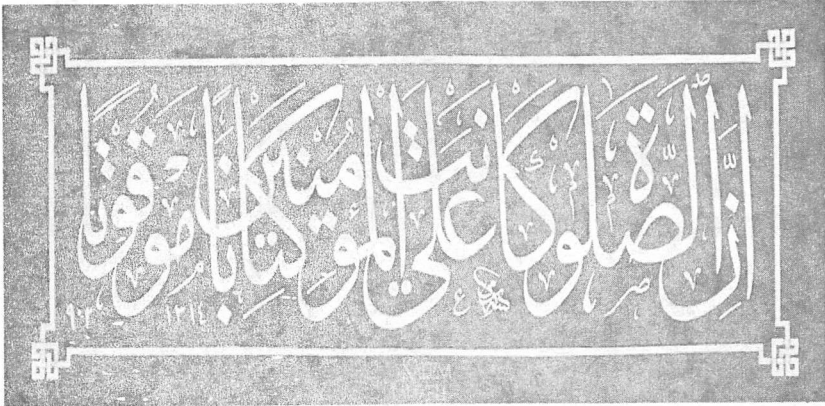 اِنَّ الصَّلٰوةَ كَانَتْ عَلَى الْمُؤْمِنٖينَ كِتَابًا مَوْقُوتًا
١٣١٤